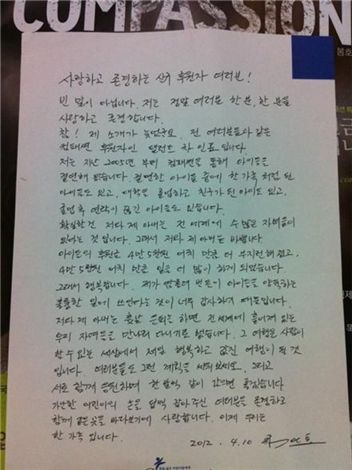 COMPASSION
사랑하고 존경하는 신규 후원자 여러분!
빈 말이 아닙니다. 저는 정말 여러분 한분, 한 분을
사랑하고 존경합니다.
참! 제 소개가 늦었군요. 전 여러분과 같은
컴패션 후원자인 탤런트 차 인표입니다.
저는 지난 2005년 부터 컴패션을 통해 아이들을
결연해 왔습니다. 결연한 아이들 중에 한 가족처럼 된
아이들도 있고, 대학을 졸업하고 친구가 된 아이도 있고,
졸업 후 연락이 끊긴 아이들도 있습니다.
확실한건 저와 제 아내는 전 세계에 수 많은 자녀들이
있다는 것입니다. 그래서 저와 제 아내는 바쁩니다.
아이들의 후원금 4만 5천원 어치 만큼 더 부지런해 졌고,
4만 5천원 어치 만큼 일을 더 많이 하게 되었습니다.
그래서 행복합니다. 제가 번 돈이 아이들을 양육하는
훌륭한 일에 쓰인다는 것이 너무 감사하기 때문입니다.
저와 제 아내는 훗날 은퇴를 하면 전 세계에 흩어져 있는
우리 자녀들을 만나러 다니기로 했습니다. 그 여행은 사람이
할 수 있는 세상에서 제일 행복하고 값진 여행이 될 것
입니다. 여러분들도 그런 계획을 세워보세요. 그리고
서로 함께 응원하며 한 발씩 같이 갔으면 좋겠습니다
가난한 어린이의 손을 덥썩 잡아주신 여러분을 존경하고
함께 같은 곳을 바라보기에 사랑합니다. 이제 우리는
한 가족 입니다.
2012. 4.10